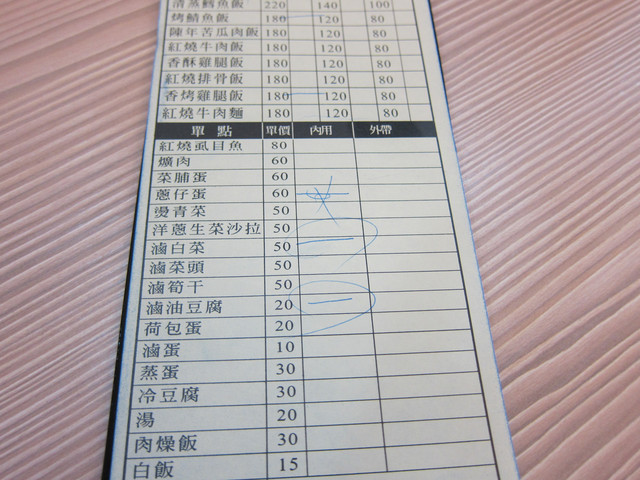 清蒸鱈魚飯 220 140 100
烤鯖魚飯 180 120 80
陳年苦瓜肉飯 180 120 80
紅燒牛肉飯 180 120 80
香酥雞腿飯 180 120 80
紅燒排骨飯 180 120 80
香烤雞腿飯 180 120 80
紅燒牛肉麵 180 120 80
單點 單價 內用 外帶
紅燒虱目魚 80
爌肉 60
菜脯蛋 60
蔥仔蛋 60
燙青菜 50
洋蔥生菜沙拉 50
滷白菜 50
滷菜頭 50
滷筍干 50
滷油豆腐 20
荷包蛋 20
滷蛋 10
蒸蛋 30
冷豆腐 30
湯 20
肉燥飯 30
白飯 15